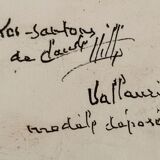 Les santons
de Claude
Vallauris
modèle déposé